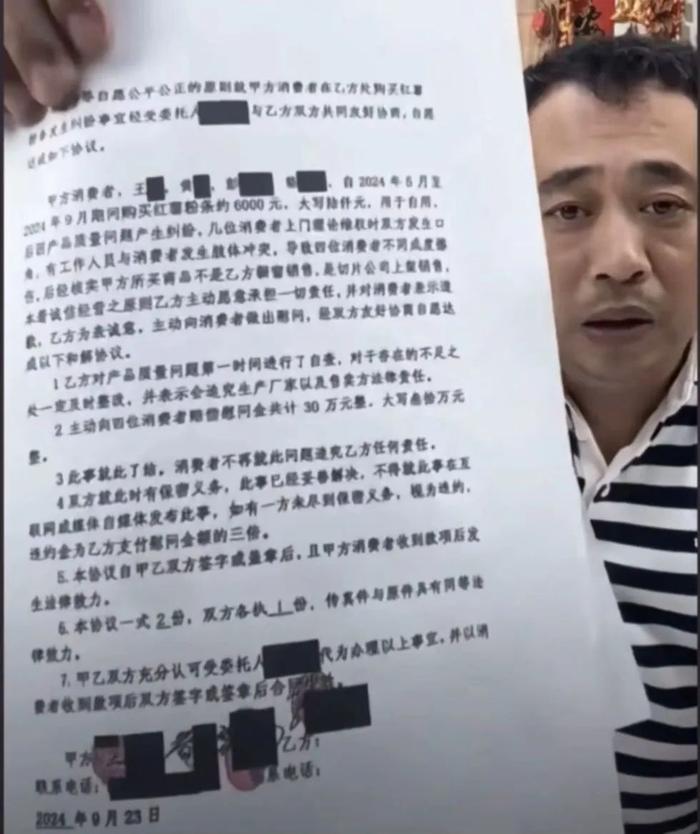 等自愿公平公正的原则就甲方消费者在乙方处购买红薯
粉条发生纠纷事宜经受委托人 与乙方双方共同友好协商，自愿
达成如下协议。
甲方消费者，王 、黄 、彭 、 、自 2024 年 5 月至
2024 年 9 月期间购买红薯粉条约 6000 元，大写陆仟元，用于自用，
后因产品质量问题产生纠纷，几位消费者上门理论维权时双方发生口
角，有工作人员与消费者发生肢体冲突，导致四位消费者不同成度
伤，后经核实甲方所买商品不是乙方橱窗销售，是切片公司上架销售，
本着诚信经营之原则乙方主动愿意承担一切责任，并对消费者表示道
歉，乙方为表诚意，主动向消费者做出慰问，经双方友好协商自愿达
成以下和解协议。
1 乙方对产品质量问题第一时间进行了自查，对于存在的不足之
处一定及时整改，并表示会追究生产厂家以及售卖方法律责任。
2 主动向四位消费者赔偿慰问金共计 30 万元整，大写叁拾万元
整。
3 此事就此了结，消费者不再就此问题追究乙方任何责任。
4 双方就此时有保密义务，此事已经妥善解决，不得就此事在互
联网或媒体自媒体发布此事，如有一方未尽到保密义务，视为违约，
违约金为乙方支付慰问金额的三倍。
5. 本协议自甲乙双方签字或盖章后，且甲方消费者收到款项后发
生法律效力。
6. 本协议一式 2 份，双方各执 1 份，传真件与原件具有同等法
律效力。
7. 甲乙双方充分认可受委托人 代为办理以上事宜，并以消
费者收到款项后双方签字或签章后合
甲方 乙方：
联系电话： 系电话：
2024 年 9 月 23 日